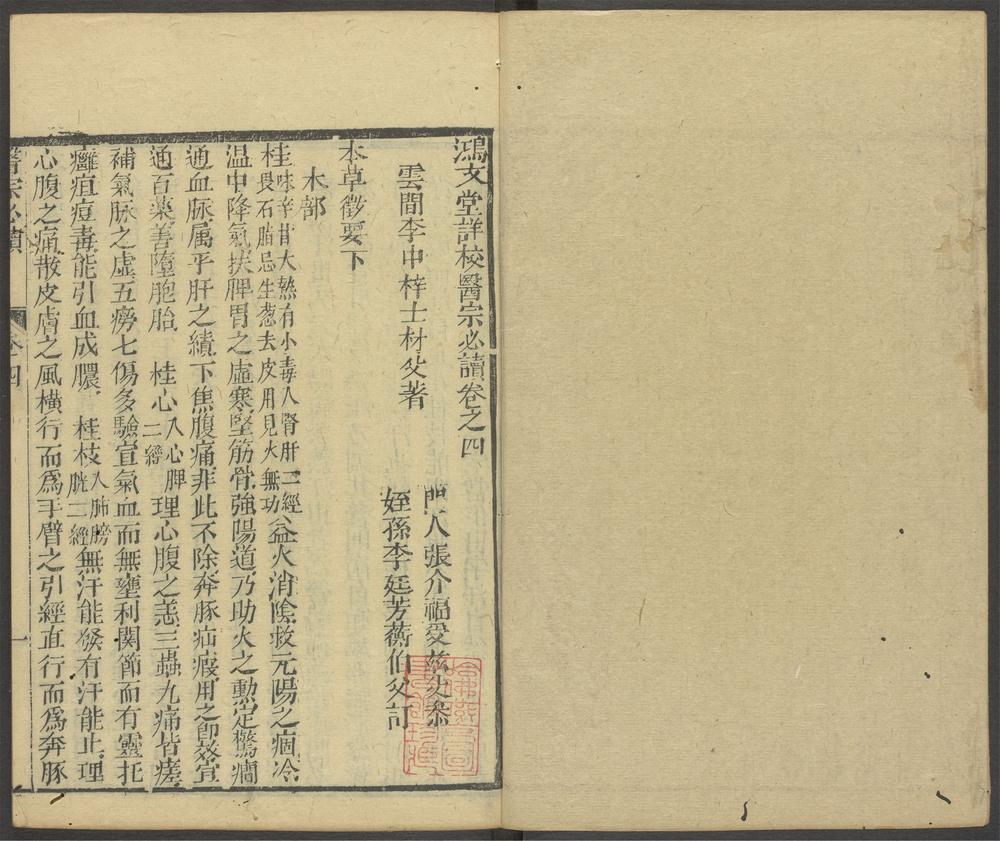 鴻文堂詳校醫宗必讀卷之四
雲間李中梓士材父著
門人張介福受茲父叅
姪孫李廷芳蘅伯父訂
本草徵要下
木部
桂味辛甘大熱有小毒入腎肝二經畏石脂忌生葱去皮用見火無功益火消陰救元陽之痼冷
温中降氣扶脾胃之虛寒堅筋骨強陽道乃助火之勲定驚癎
通血脉属乎肝之績下焦腹痛非此不除奔豚疝瘕用之卽效宣
通百藥善墮胞胎 桂心入心脾二經理心腹之恙三蟲九痛皆瘥
補氣脉之虛五癆七傷多驗宣氣血而無壅利関節而有靈托
癰疽痘毒能引血成膿 桂枝入肺膀胱二經無汗能發有汗能止理
心腹之痛散皮膚之風橫行而爲手臂之引經直行而爲奔豚
醫宗必讀 卷四 一